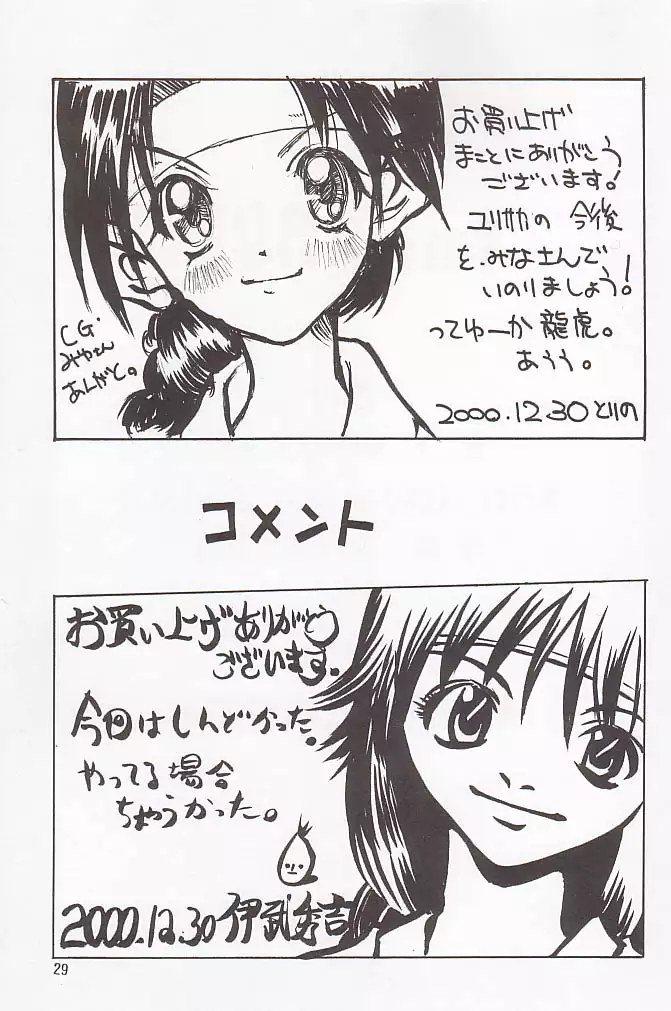 お買い上げ
まことにありがとう
ございます!
ユリサカの 今後
を、みなさんで
いのりましょう!
ってゆーか 龍虎。
あうう。
2000.12.30 とりの
CG.
みやさん
ありがと。
コメント
お買い上げありがとう
ございます。
今回はしんどかった。
やってる場合
ちゃうかった。
2000.12.30 伊武秀吉
29